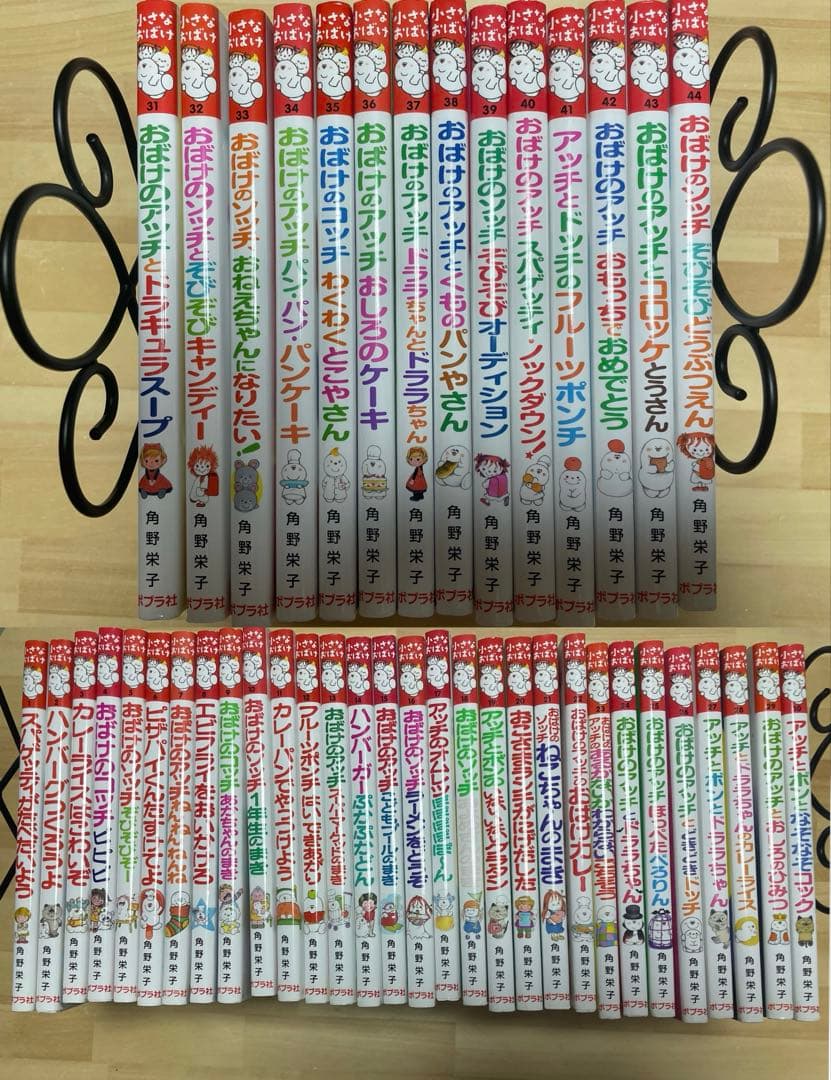 小さな
おばけ
31
おばけのアッチとドラキュラスープ
角野栄子
ポプラ社
小さな
おばけ
32
おばけのソッチとぞびぞびキャンディー
角野栄子
ポプラ社
小さな
おばけ
33
おばけのソッチ おねえちゃんになりたい!
角野栄子
ポプラ社
小さな
おばけ
34
おばけのアッチ パン・パン・パンケーキ
角野栄子
ポプラ社
小さな
おばけ
35
おばけのコッチ わくわくとこやさん
角野栄子
ポプラ社
小さな
おばけ
36
おばけのアッチ おしろのケーキ
角野栄子
ポプラ社
小さな
おばけ
37
おばけのアッチ ドララちゃんとドララちゃん
角野栄子
ポプラ社
小さな
おばけ
38
おばけのアッチとくものパンやさん
角野栄子
ポプラ社
小さな
おばけ
39
おばけのソッチ ぞびぞびオーディション
角野栄子
ポプラ社
小さな
おばけ
40
おばけのアッチ スパゲッティ・ノックダウン!
角野栄子
ポプラ社
小さな
おばけ
41
アッチとドッチのフルーツポンチ
角野栄子
ポプラ社
小さな
おばけ
42
おばけのアッチ おもっちでおめでとう
角野栄子
ポプラ社
小さな
おばけ
43
おばけのアッチとコロッケとうさん
角野栄子
ポプラ社
小さな
おばけ
44
おばけのソッチ ぞびぞびどうぶつえん
角野栄子
ポプラ社
小さな
おばけ
1
スパゲッティがたべたいよう
角野栄子
ポプラ社
小さな
おばけ
2
ハンバーグつくろうよ
角野栄子
ポプラ社
小さな
おばけ
3
カレーライスはこわいぞ
角野栄子
ポプラ社
小さな
おばけ
4
おばけのコッチ ピピピ
角野栄子
ポプラ社
小さな
おばけ
5
おばけのソッチ ぞびぞびぞー
角野栄子
ポプラ社
小さな
おばけ
6
ピザパイくんたすけてよ
角野栄子
ポプラ社
小さな
おばけ
7
おばけのアッチ ねんねんねんね
角野栄子
ポプラ社
小さな
おばけ
8
エビフライをおいかけろ
角野栄子
ポプラ社
小さな
おばけ
9
おばけのコッチ あかちゃんのまき
角野栄子
ポプラ社
小さな
おばけ
10
おばけのソッチ 1年生のまき
角野栄子
ポプラ社
小さな
おばけ
11
カレーパンでやっつけよう
角野栄子
ポプラ社
小さな
おばけ
12
フルーツポンチはいできあがり
角野栄子
ポプラ社
小さな
おばけ
13
おばけのアッチ スーパーマーケットのまき
角野栄子
ポプラ社
小さな
おばけ
14
ハンバーガーぷかぷかどん
角野栄子
ポプラ社
小さな
おばけ
15
おばけのアッチ こどもプールのまき
角野栄子
ポプラ社
小さな
おばけ
16
おばけのソッチ ラーメンをどうぞ
角野栄子
ポプラ社
小さな
おばけ
17
アッチのオムレツぽぽぽぽぽ～ん
角野栄子
ポプラ社
小さな
おばけ
18
おばけのソッチ
角野栄子
ポプラ社
小さな
おばけ
19
アッチとボンのいないいないグラタン
角野栄子
ポプラ社
小さな
おばけ
20
おこさまランチがにげだした
角野栄子
ポプラ社
小さな
おばけ
21
おばけのソッチ ねこちゃんのまき
角野栄子
ポプラ社
小さな
おばけ
22
おばけのアッチのおばけカレー
角野栄子
ポプラ社
小さな
おばけ
23
角野栄子
ポプラ社
小さな
おばけ
24
おばけのアッチとドララちゃん
角野栄子
ポプラ社
小さな
おばけ
25
おばけのアッチ ほっぺたぺろりん
角野栄子
ポプラ社
小さな
おばけ
26
おばけのアッチとどきどきドッチ
角野栄子
ポプラ社
小さな
おばけ
27
アッチとボンとドララちゃん
角野栄子
ポプラ社
小さな
おばけ
28
アッチとドララちゃんのカレーライス
角野栄子
ポプラ社
小さな
おばけ
29
おばけのアッチとおしろのひみつ
角野栄子
ポプラ社
小さな
おばけ
アッチとボンとなぞなぞコック
角野栄子
ポプラ社